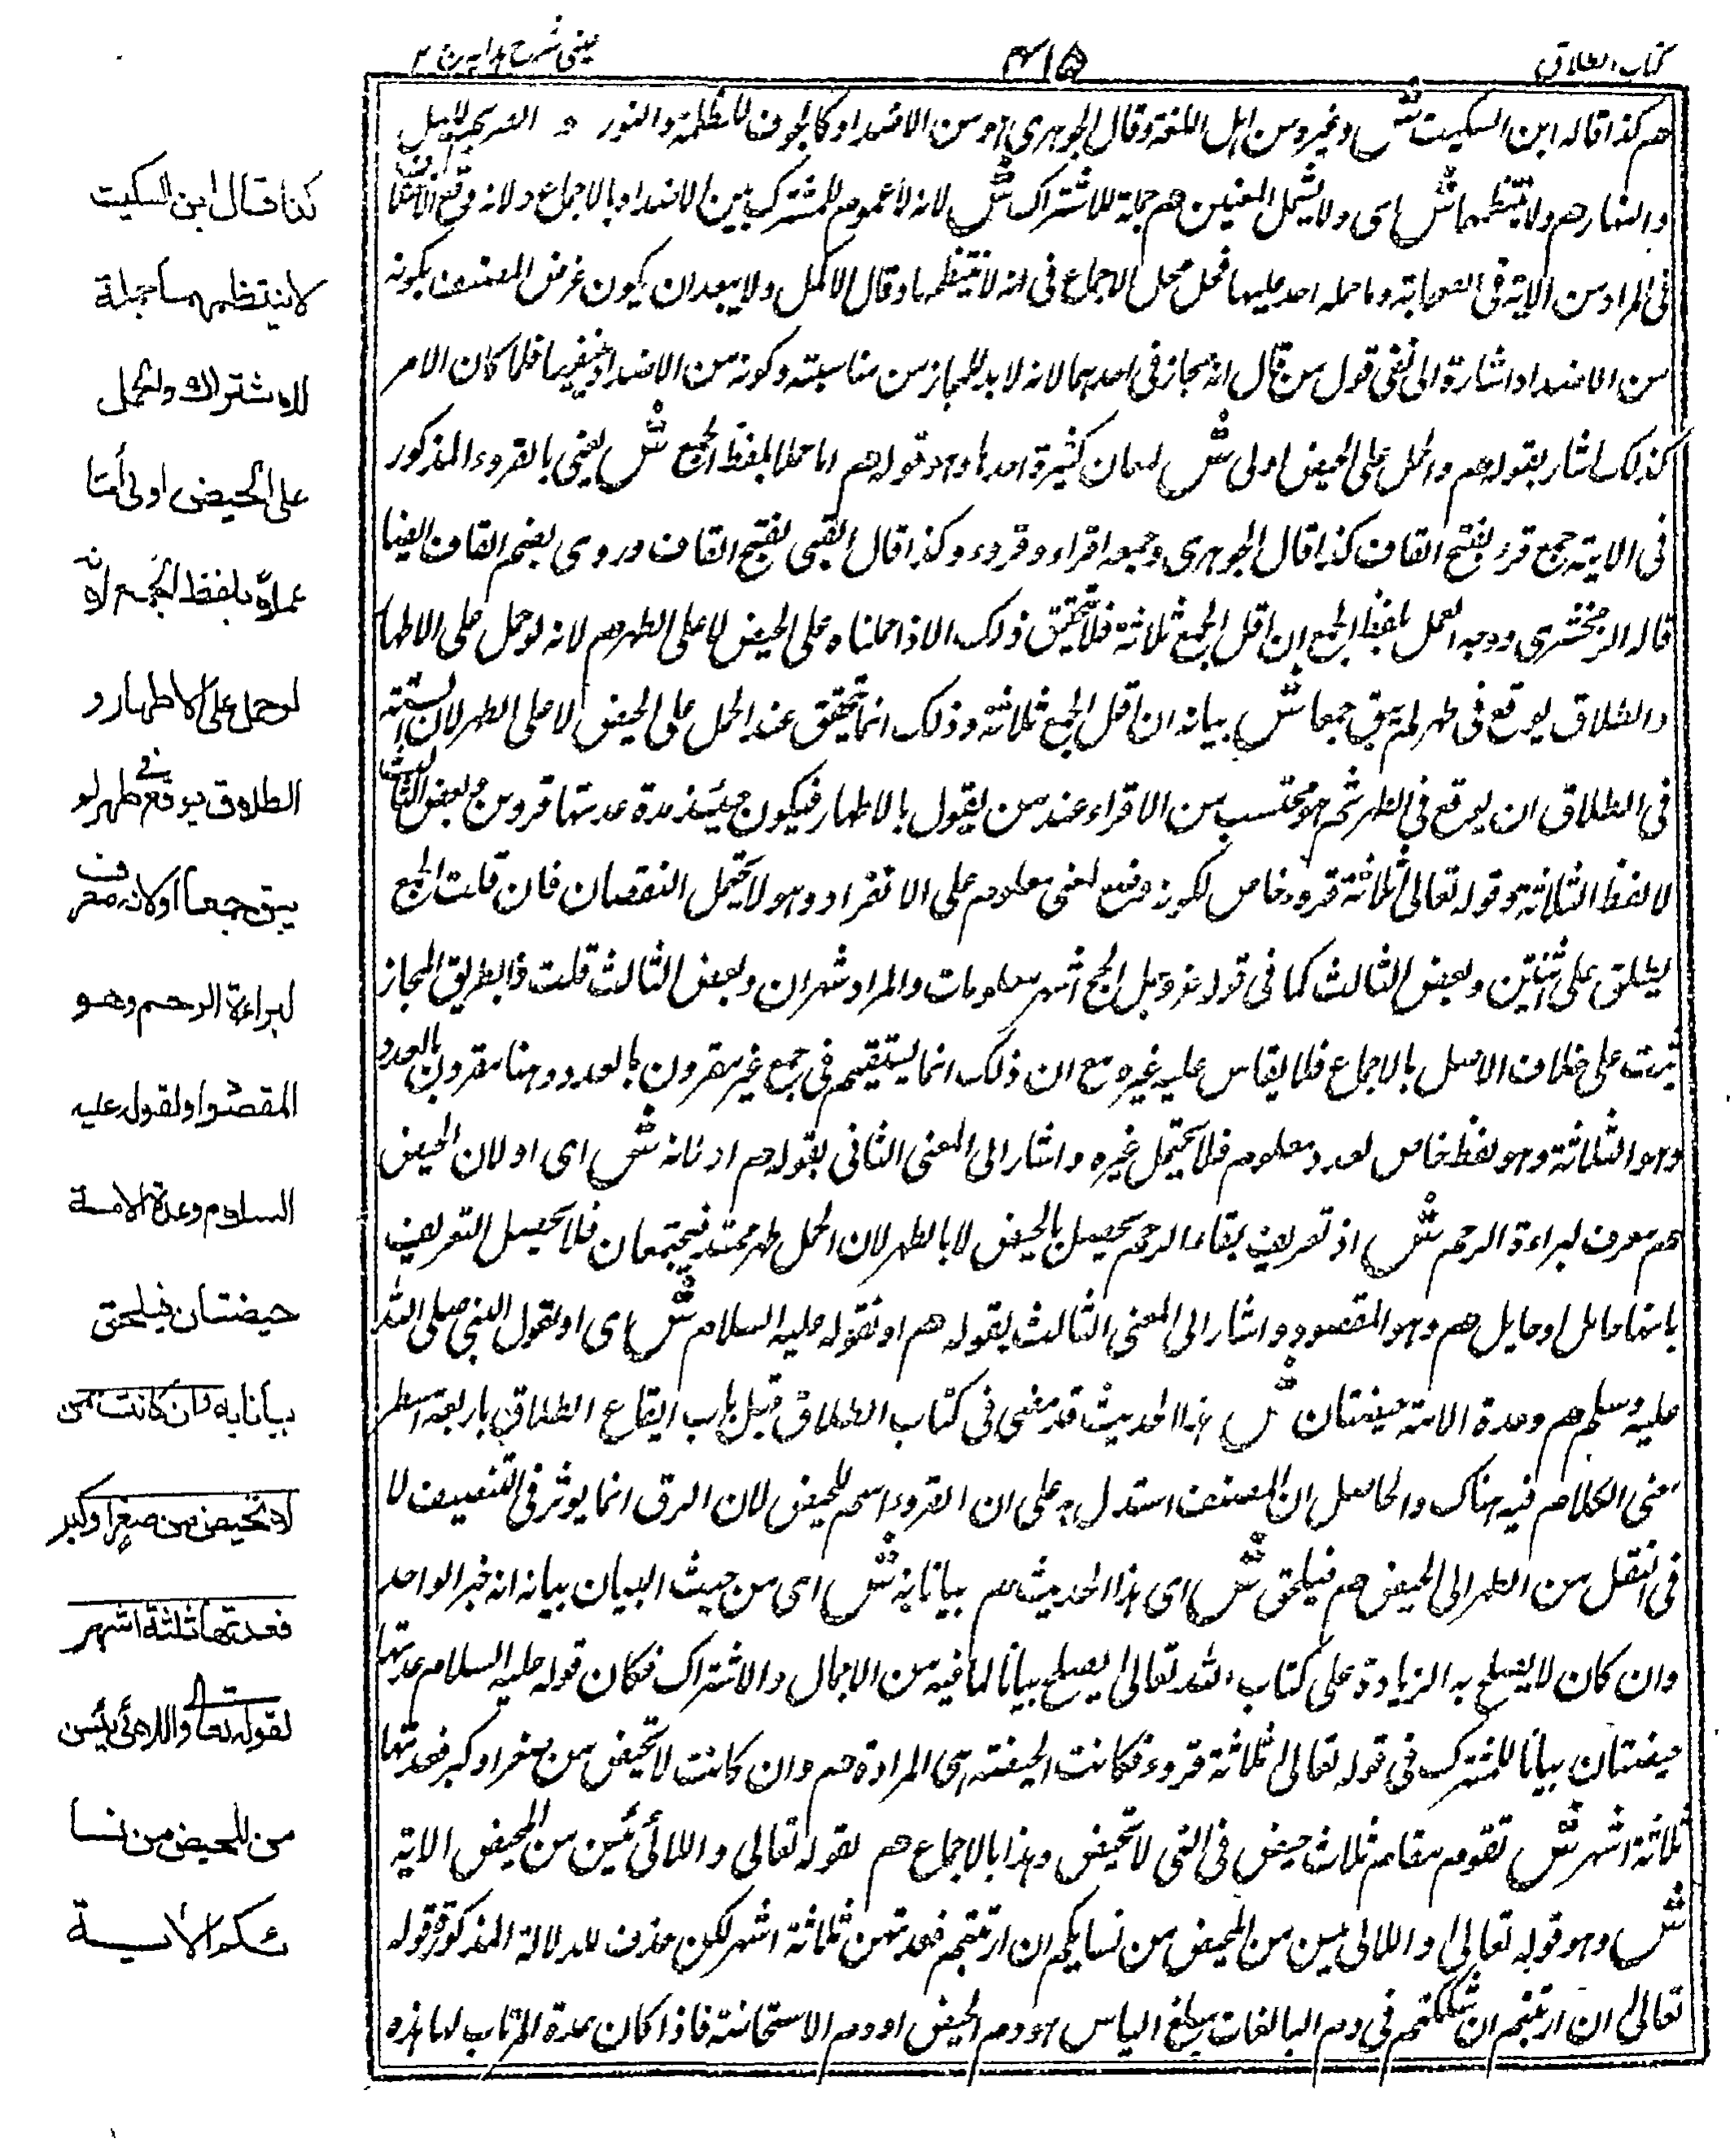 كتاب الطلاق
۴۱۵
عينى شرح هدايه ج ۲
هم كذا قاله ابن السكيت ش وغيره من اهل اللغة وقال الجوهرى هو من الاضداد كالجون للظلمة والنور و الصريم لليل
والنهار هم ولا تنتظمها ش اى ولا يشمل المعنيين هم جملة للاشتراك ش لانه لا عموم للمشترك بين الاضداد بالاجماع ولانه وقع الاختلاف
فى المراد من الاية فى الصحابة وما حمله احد عليها فحل محل الاجماع فى انه لا تنتظمها وقال الاكمل ولا يبعد ان يكون غرض المصنف بكونه
من الاضداد اشارة الى نفى قول من قال انه مجاز فى احدهما لانه لابد للمجاز من مناسبته وكونه من الاضداد ينفيها فلما كان الامر
كذلك اشار بقوله هم والحمل على الحيض اولى ش لمعان كثيرة احدها وهو قوله هم اما عملا بلفظ الجمع ش يعنى بالقروء المذكور
فى الاية جمع قرء بفتح القاف كذا قال الجوهرى وجمعه اقراء وقروء وكذا قال القبى بفتح القاف وروى بضم القاف ايضا
قاله الزمخشرى ووجه العمل بلفظ الجمع ان اقل الجمع ثلاثة فلا يتحقق ذلك الا اذا حملناه على الحيض لا على الطهر هم لانه لو حمل على الاطهار
والطلاق يوقع فى طهر لم يبق جمعا ش بيانه ان اقل الجمع ثلاثة وذلك انما يتحقق عند الحمل على الحيض لا على الطهر لان السنة
فى الطلاق ان يوقع فى الطهر ثم هو محتسب من الاقراء عند من يقول بالاطهار فيكون حينئذ مدة عدتها قروين وبعض الثالث
لا لفظ الثلاثة وقوله تعالى ثلاثة قروء خاص لكونه وضع لمعنى معلوم على الانفراد وهو لا يحتمل النقصان فان قلت الجمع
يطلق على اثنتين وبعض الثالث كما فى قوله عز وجل الحج اشهر معلومات والمراد شهران وبعض الثالث قلت ذا بطريق المجاز
ثبت على خلاف الاصل بالاجماع فلا يقاس عليه غيره مع ان ذلك انما يستقيم فى جمع غير مقرون بالعدد وهنا مقرون بالعدد
وهو الثلاثة وهو لفظ خاص لعدد معلوم فلا يحتمل غيره واشار الى المعنى الثانى بقوله هم او لانه ش اى او لان الحيض
هم معرف لبراءة الرحم ش اذ تعريف بقاء الرحم يحصل بالحيض لا بالطهر لان الحمل طهر ممتد فيجتمعان فلا يحصل التعريف
بانها حامل او حايل هم وهو المقصود واشار الى المعنى الثالث بقوله هم او لقوله عليه السلام ش اى او لقول النبى صلى الله
عليه وسلم هم وعدة الامة حيضتان ش هذا الحديث قد مضى فى كتاب الطلاق قبل باب ايقاع الطلاق باربعة اسطر
مضى الكلام فيه هناك والحاصل ان المصنف استدل به على ان القروء اسم للحيض لان الرق انما يوثر فى التنصيف لا
فى النقل من الطهر الى الحيض هم فيلحق ش اى هذا الحديث هم بيانا به ش اى من حيث البيان بيانه انه خبر الواحد
وان كان لا يصلح به الزيادة على كتاب الله تعالى يصلح بيانا لما فيه من الاجمال والاشتراك فكان قوله عليه السلام عدتها
حيضتان بيانا للمشترك فى قوله تعالى ثلاثة قروء فكانت الحيضة هى المرادة هم وان كانت لا تحيض من صغر او كبر فعدتها
ثلاثة اشهر ش تقوم مقام ثلاث حيض فى التى لا تحيض وهذا بالاجماع هم لقوله تعالى واللائى يئسن من المحيض الاية
ش وهو قوله تعالى واللائى يئسن من المحيض من نسايكم ان ارتبتم فعدتهن ثلاثة اشهر لكن حذف للدلالة المذكور قوله
تعالى ان ارتبتم ان شككتم فى دم البالغات مبلغ الياس هو دم الحيض او دم الاستحاضة فاذا كان عدة المرتاب لها هذه
كذا قال ابن السكيت
لا ينتظمهما جملة
للاشتراك والحمل
على الحيض اولى أما
عملاً بلفظ الجمع لانه
لو حمل على الاطهار و
الطلاق يوقع فى طهر لو
يبق جمعا اولانه معرف
لبراءة الرحم وهو
المقصود اولقوله عليه
السلام وعدة الامة
حيضتان فيلحق
بيانا به وان كانت ممن
لا تحيض من صغر او كبر
فعدتها ثلثة اشهر
لقوله تعالى واللاهئ يئسن
من المحيض من نسا
ئكم الأية